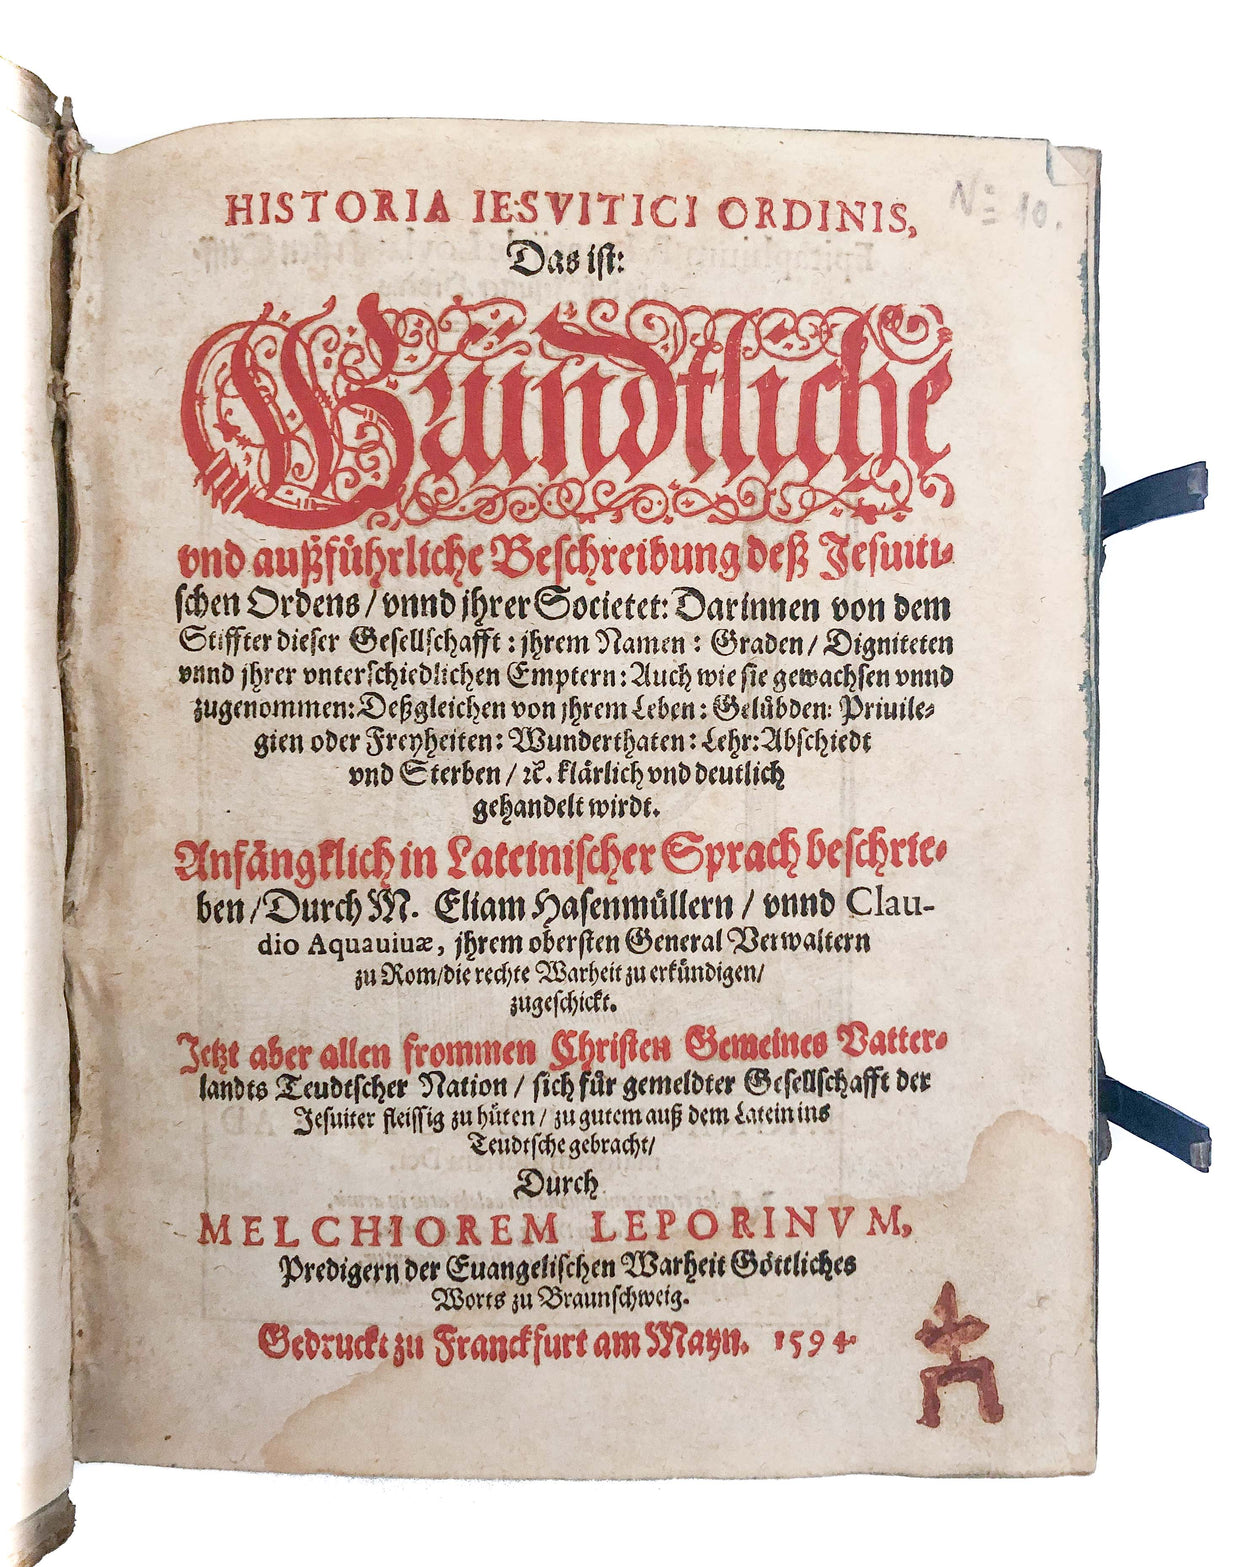 HISTORIA IESVITICI ORDINIS,
Das ist:
Gründtliche
vnd außführliche Beschreibung deß Jesuiti-
schen Ordens / vnnd jhrer Societet: Darinnen von dem
Stiffter dieser Gesellschafft: jhrem Namen: Graden / Digniteten
vnnd jhrer vnterschiedlichen Emptern: Auch wie sie gewachsen vnnd
zugenommen: Deßgleichen von jhrem Leben: Gelübden: Priuile-
gien oder Freyheiten: Wunderthaten: Lehr: Abschiedt
vnd Sterben / ꝛc. klärlich vnd deutlich
gehandelt wirdt.
Anfängklich in Lateinischer Sprach beschrie-
ben / Durch M. Eliam Hasenmüllern / vnnd Clau-
dio Aquauiuæ, jhrem obersten General Verwaltern
zu Rom / die rechte Warheit zu erkündigen /
zugeschickt.
Jetzt aber allen frommen Christen Gemeines Vatter-
landts Teudtscher Nation / sich für gemeldter Gesellschafft der
Jesuiter fleissig zu hüten / zu gutem auß dem Latein ins
Teudtsche gebracht /
Durch
MELCHIOREM LEPORINVM,
Predigern der Euangelischen Warheit Göttliches
Worts zu Braunschweig.
Gedruckt zu Franckfurt am Mayn. 1594.
No 10.